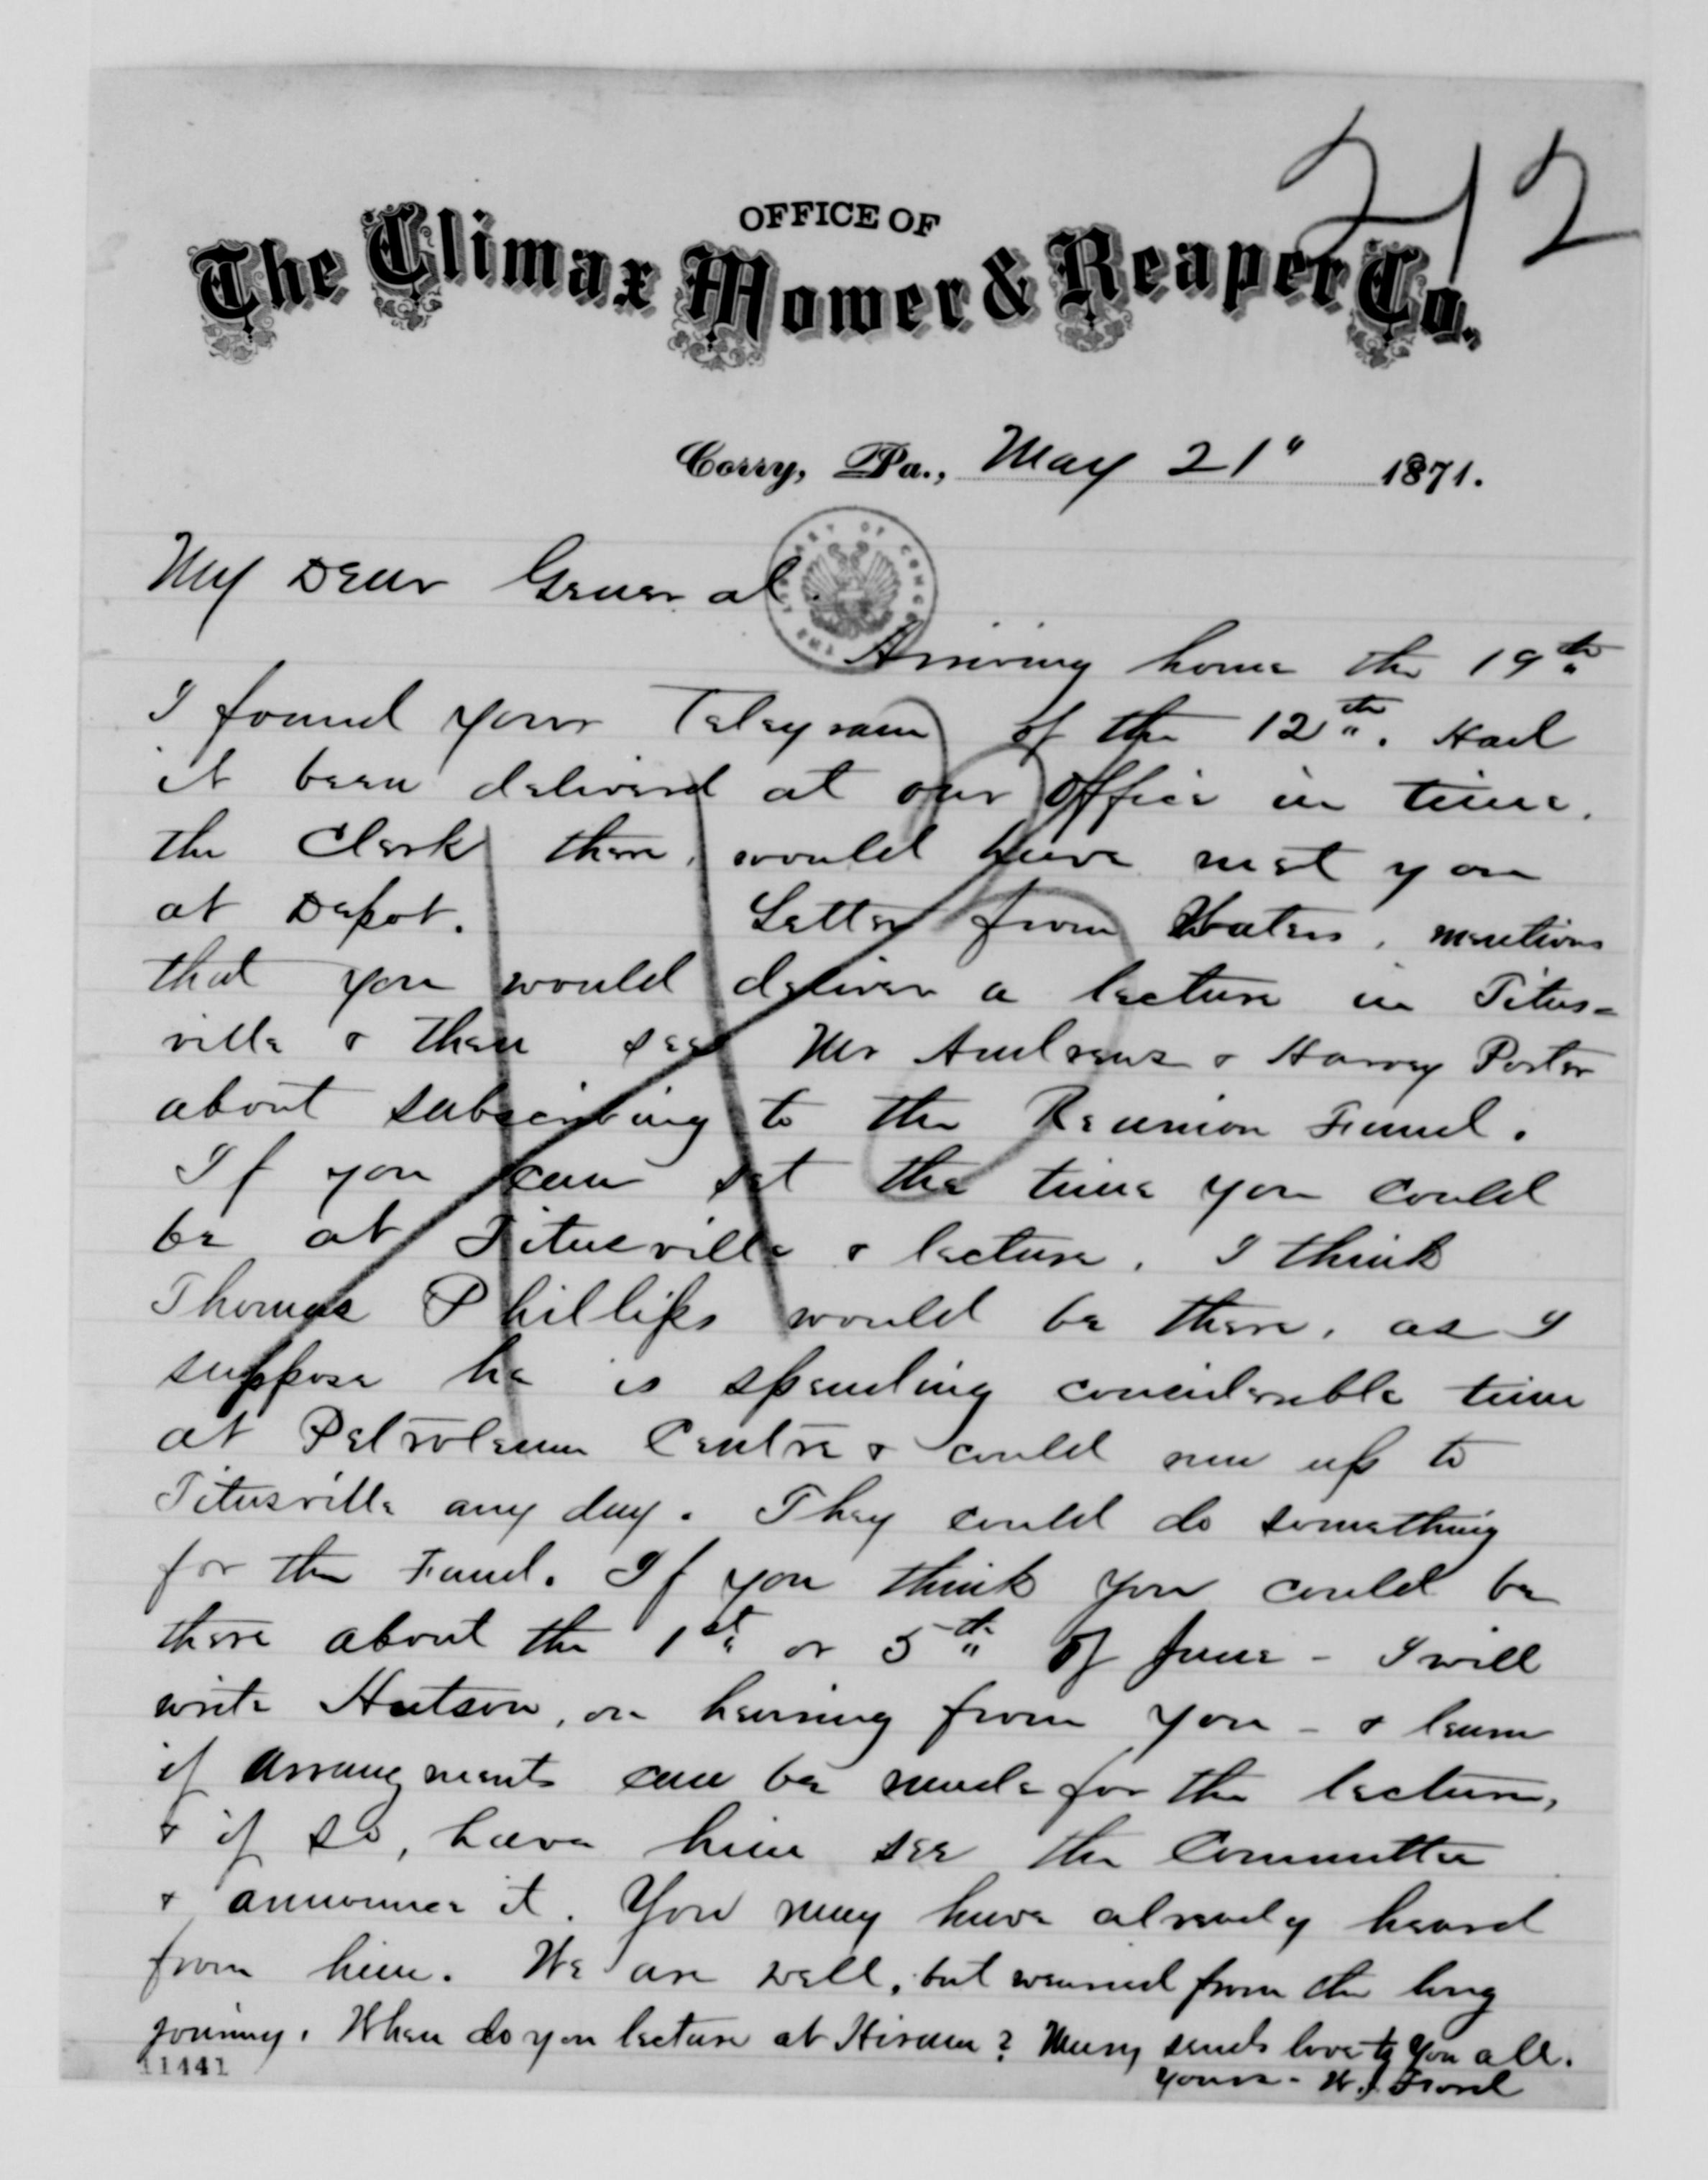 212
OFFICE OF
The Climax Mower & Reaper Co.
Corry, Pa., May 21" 1871.
My Dear General.
THE LIBRARY OF CONGRESS
Arriving home the 19th
I found your Telegram of the 12th. Had
it been deliverd at our office in time,
the Clerk there, would have met you
at Depot. Letter from Waters, mentions
that you would deliver a lecture in Titus=
ville & then see Mr Andrews & Harvey Porter
about subscribing to the Reunion Fund.
If you can set the time you could
be at Titusville & lecture, I think
Thomas Phillips would be there, as I
suppose he is spending considerable time
at Petroleum Centre & could run up to
Titusville any day. They could do something
for the Fund. If you think you could be
there about the 1st or 5th of June - I will
write Hutson, on hearing from you - & learn
if arrangments can be made for the lecture,
& if so, have him see the Committee
& announce it. You may have already heard
from him. We are well, but wearied from the long
journey. When do you lecture at Hiram? Mary sends love to you all.
Yours - W. J. Ford
11441